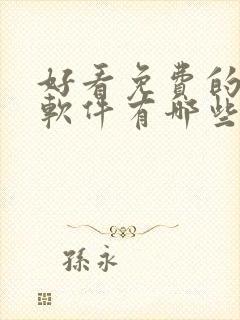 好看免費的
軟件有哪些
孫永